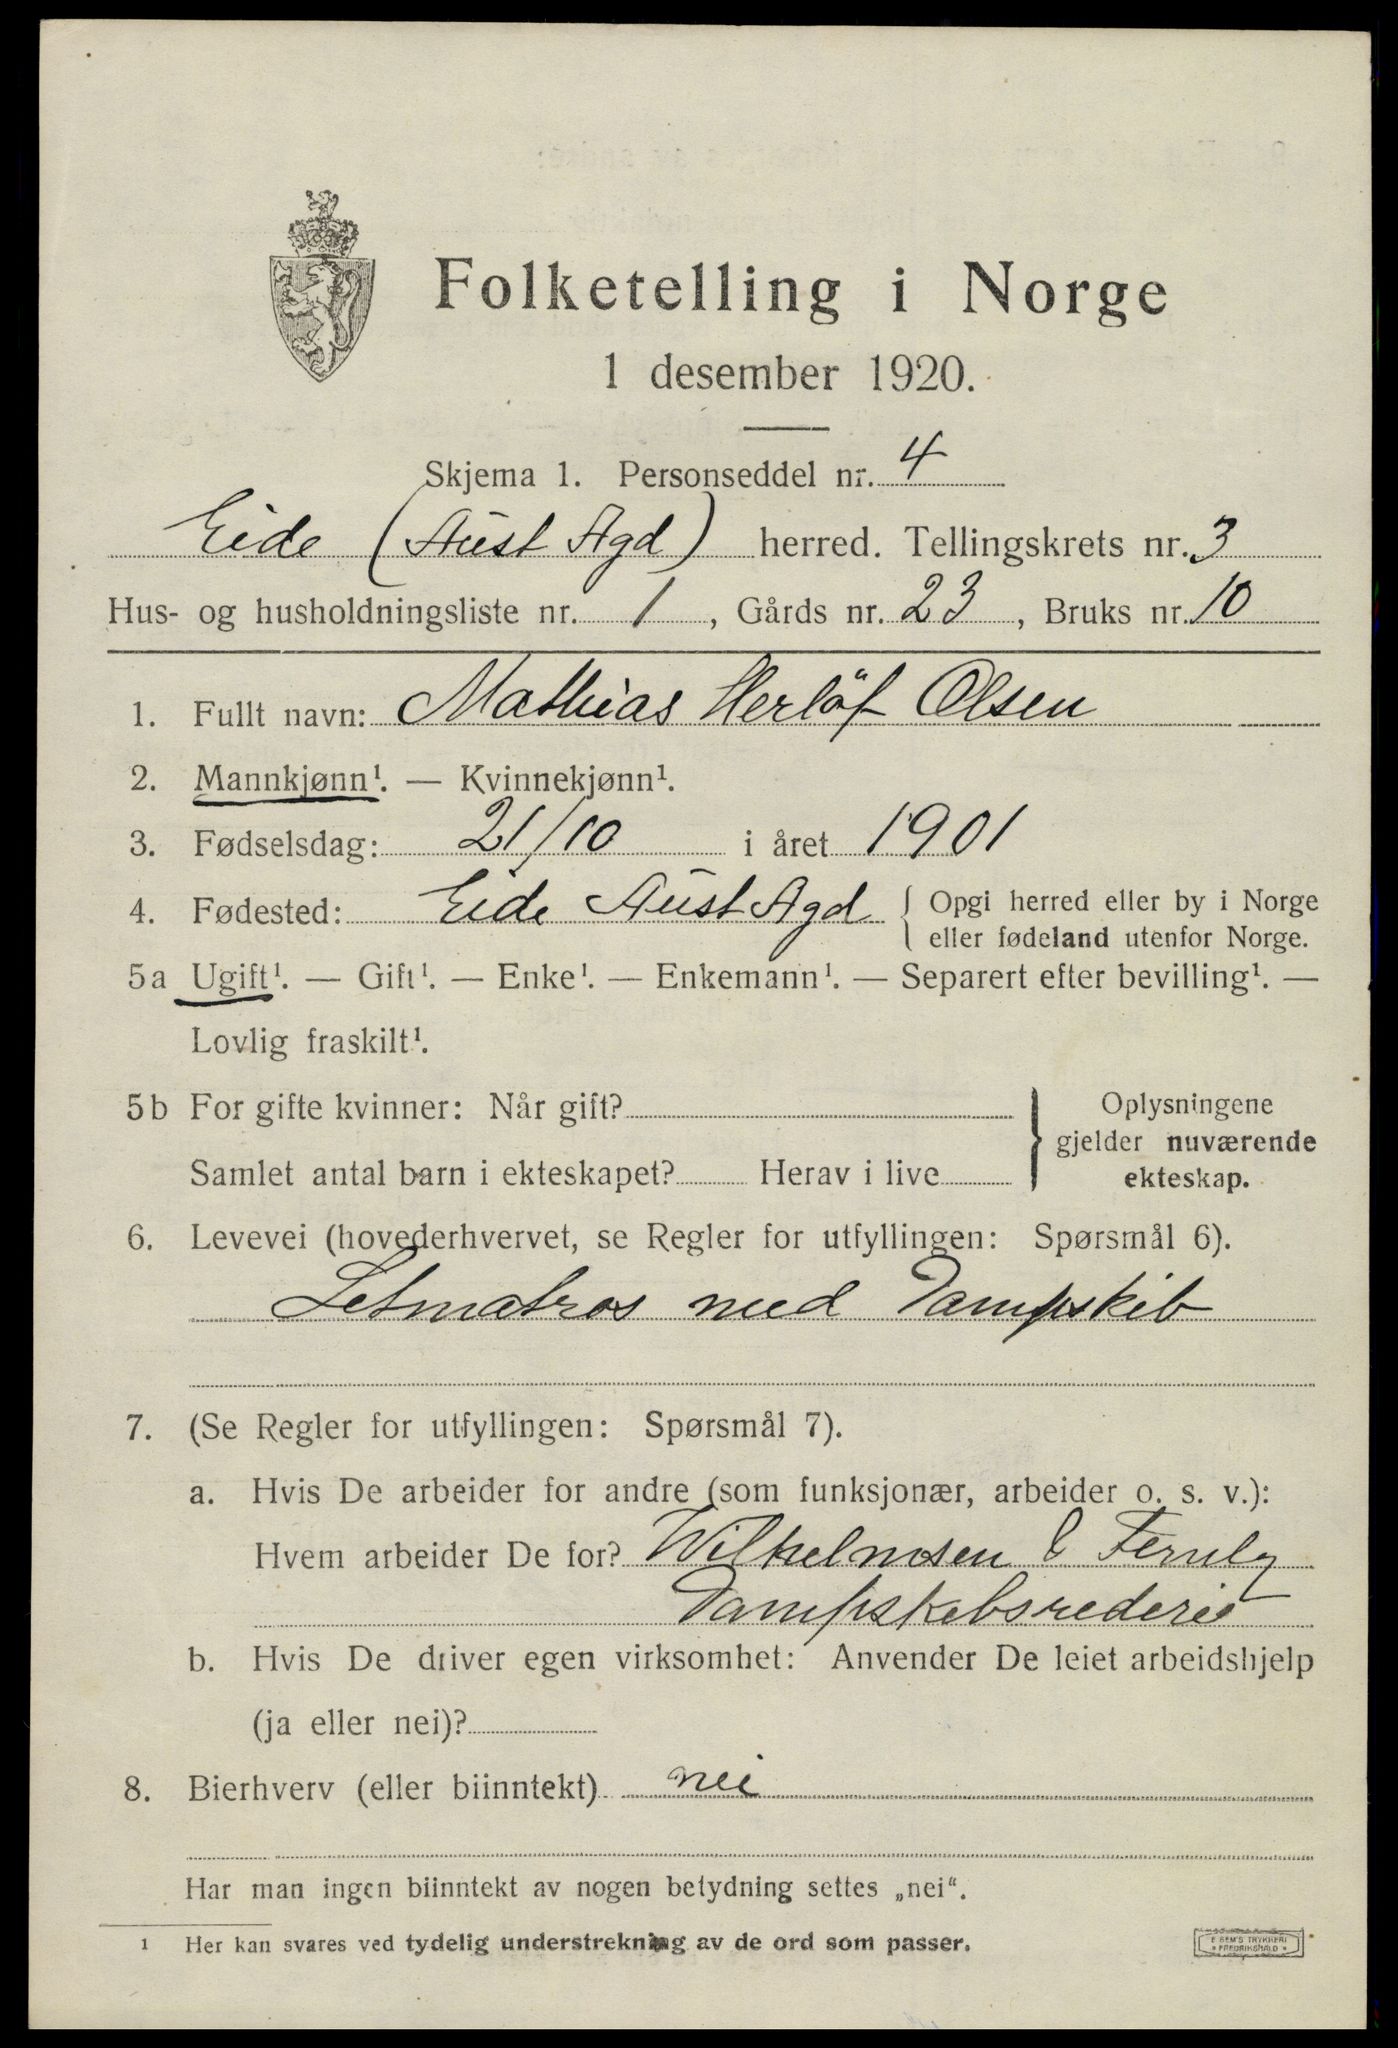 Folketelling i Norge
1 desember 1920.
Skjema 1. Personseddel nr. 4
Eide (Aust Agd) herred. Tellingskrets nr. 3
Hus- og husholdningsliste nr. 1, Gårds nr. 23, Bruks nr. 10
1. Fullt navn: Mathias Herlöf Olsen
2. Mannkjønn¹. — Kvinnekjønn¹.
3. Fødselsdag: 21/10 i året 1901
4. Fødested: Eide Aust Agd { Opgi herred eller by i Norge
eller fødeland utenfor Norge.
5a Ugift¹. — Gift¹. — Enke¹. — Enkemann¹. — Separert efter bevilling¹. —
Lovlig fraskilt¹.
5b For gifte kvinner: Når gift?
Samlet antal barn i ekteskapet? Herav i live
} Oplysningene
gjelder nuværende
ekteskap.
6. Levevei (hovederhvervet, se Regler for utfyllingen: Spørsmål 6).
Letmatros med Dampskib
7. (Se Regler for utfyllingen: Spørsmål 7).
a. Hvis De arbeider for andre (som funksjonær, arbeider o. s. v.):
Hvem arbeider De for? Wilhelmsen & Fernly
Dampskibsrederie
b. Hvis De driver egen virksomhet: Anvender De leiet arbeidshjelp
(ja eller nei)?
8. Bierhverv (eller biinntekt) nei
Har man ingen biinntekt av nogen betydning settes „nei“.
¹ Her kan svares ved tydelig understrekning av de ord som passer.
E SEM'S TRYKKERI
* FREDRIKSHALD *